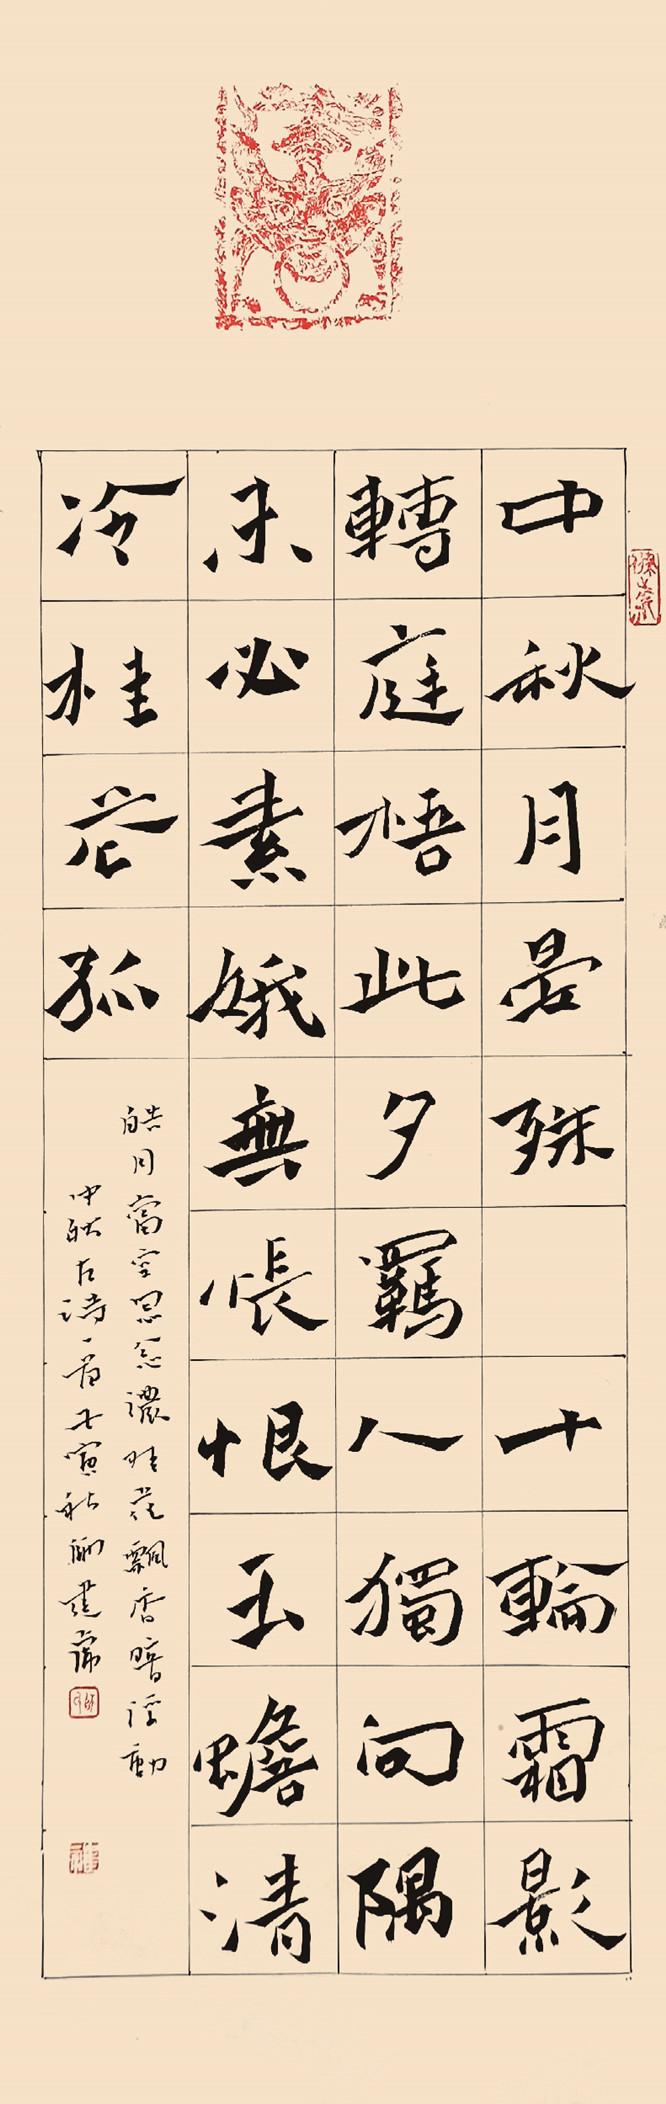 中秋月晏殊 十輪霜影
轉庭梧此夕羈人獨向隅
未必素娥無悵恨玉蟾清
冷桂花孤
皓月當空思念濃桂花飄香暗浮動
中秋古詩一首壬寅秋